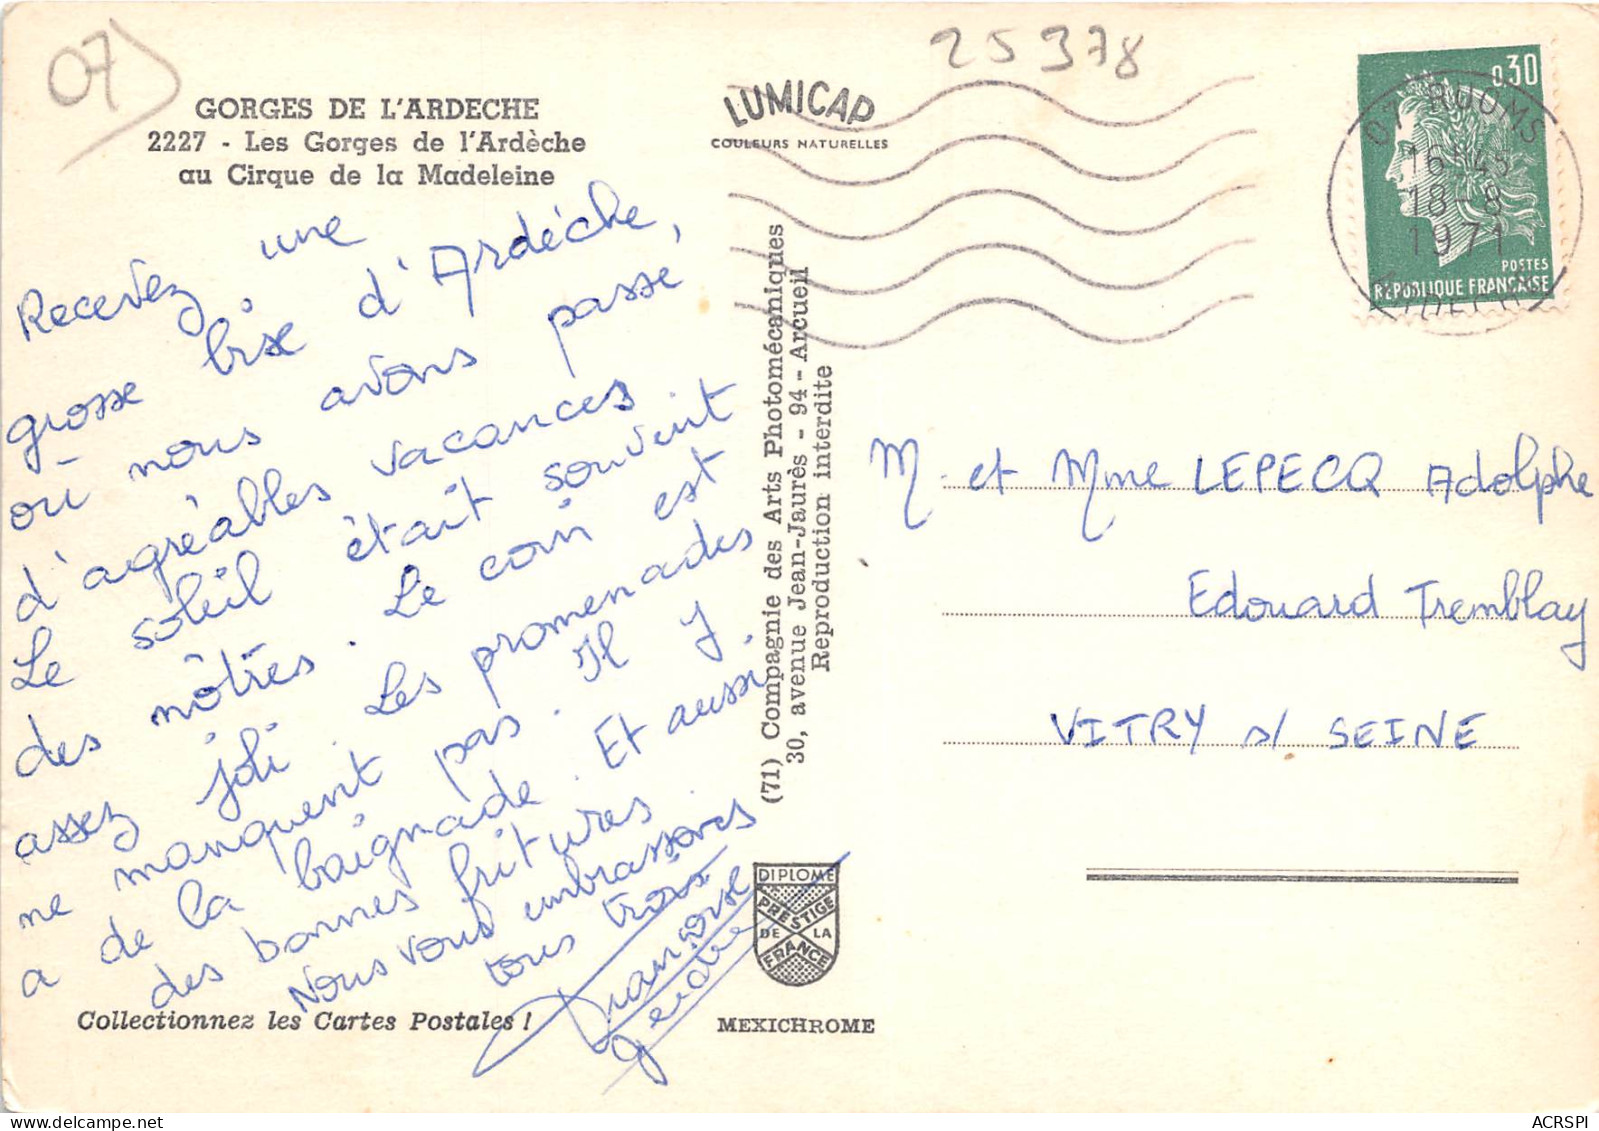 07
25378
GORGES DE L'ARDECHE
2227 - Les Gorges de l'Ardèche
au Cirque de la Madeleine
LUMICAP
COULEURS NATURELLES
0,30
POSTES
REPUBLIQUE FRANÇAISE
07 RUOMS
16H45
18-8
1971
ARDECHE
Recevez une
grosse bise d'Ardèche,
où nous avons passé
d'agréables vacances
Le soleil était souvent
des nôtres. Le coin est
assez joli Les promenades
ne manquent pas. Il y
a de la baignade. Et aussi,
des bonnes fritures.
Nous vous embrassons
tous trois
Françoise
(71) Compagnie des Arts Photomécaniques
30, avenue Jean-Jaurès - 94 - Arcueil
Reproduction interdite
M. et Mme LEPECQ Adolphe
Edouard Tremblay
VITRY s/ SEINE
DIPLOME
PRESTIGE
DE LA
FRANCE
Collectionnez les Cartes Postales !
MEXICHROME
ACRSPI